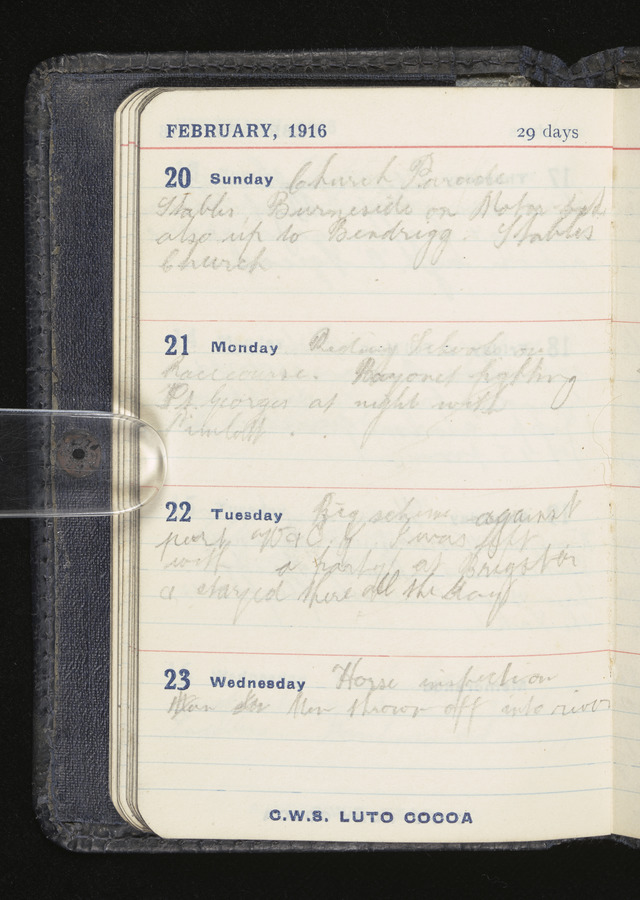 FEBRUARY, 1916 29 days
20 Sunday Church Parade
Stables, Burneside on Motor
also up to Bendrigg. Stables
Church
21 Monday Riding School on
Racecourse. Bayonet fighting
St. Georges at night with
22 Tuesday Big scheme against
part I was left
with a party at Brigster
a stayed there all the day
23 Wednesday Horse inspection
thrown off into river
C.W.S. LUTO COCOA